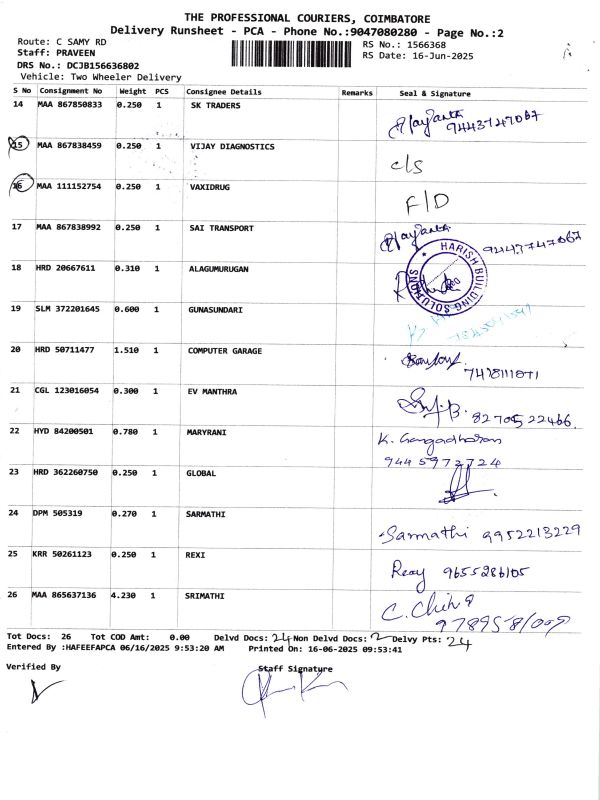 THE PROFESSIONAL COURIERS, COIMBATORE
Delivery Runsheet - PCA - Phone No.:9047080280 - Page No.:2
Route: C SAMY RD
RS No.: 1566368
Staff: PRAVEEN
RS Date: 16-Jun-2025
DRS No.: DCJB156636802
Vehicle: Two Wheeler Delivery
S No Consignment No Weight PCS Consignee Details Remarks Seal & Signature
14 MAA 867850833 0.250 1 SK TRADERS
15 MAA 867838459 0.250 1 VIJAY DIAGNOSTICS C/S
16 MAA 111152754 0.250 1 VAXIDRUG F/D
17 MAA 867838992 0.250 1 SAI TRANSPORT
18 HRD 20667611 0.310 1 ALAGUMURUGAN HARISH BUILDING SOLUTIONS
19 SLM 372201645 0.600 1 GUNASUNDARI
20 HRD 50711477 1.510 1 COMPUTER GARAGE
21 CGL 123016054 0.300 1 EV MANTHRA
22 HYD 84200501 0.780 1 MARYRANI K. Gangadharan
9445972724
23 HRD 362260750 0.250 1 GLOBAL
24 DPM 505319 0.270 1 SARMATHI Sarmathi 9952213229
25 KRR 50261123 0.250 1 REXI 9655286105
26 MAA 865637136 4.230 1 SRIMATHI
Tot Docs: 26 Tot COD Amt: 0.00 Delvd Docs: 24 Non Delvd Docs: 2 Delvy Pts: 24
Entered By :HAFEEFAPCA 06/16/2025 9:53:20 AM Printed On: 16-06-2025 09:53:41
Verified By Staff Signature